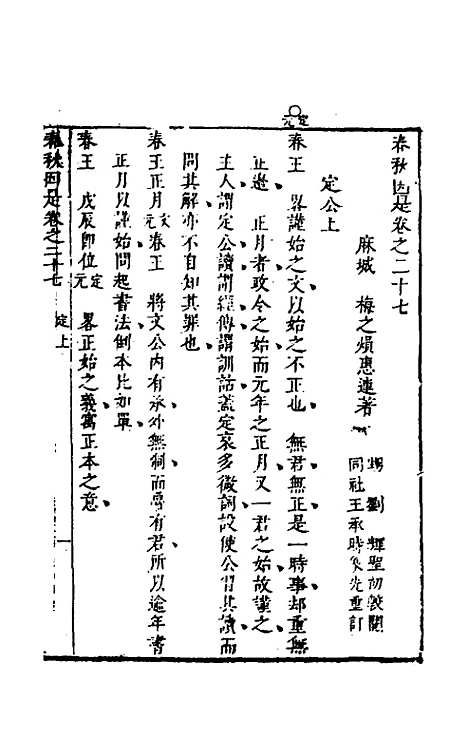 春秋因是卷之二十七
麻城　梅之熉惠連著
甥　劉　輝聖初較閱
同社王承時象先重訂
定公上
定元
春王　畧謹始之文以始之不正也　無君無正是一時事却重無
正邊　正月者政令之始而元年之正月又一君之始故謹之
主人謂定公讀謂經傳謂訓詁蓋定哀多微詞設使公習其讀而
問其解亦不自知其罪也
春王正月文元春王　將文公內有承外無嗣而魯有君所以逾年書
正月以謹始問起書法倒本比如單
春王　戊辰即位定元　畧正始之義寓正本之意
春秋因是卷之二十七　定上